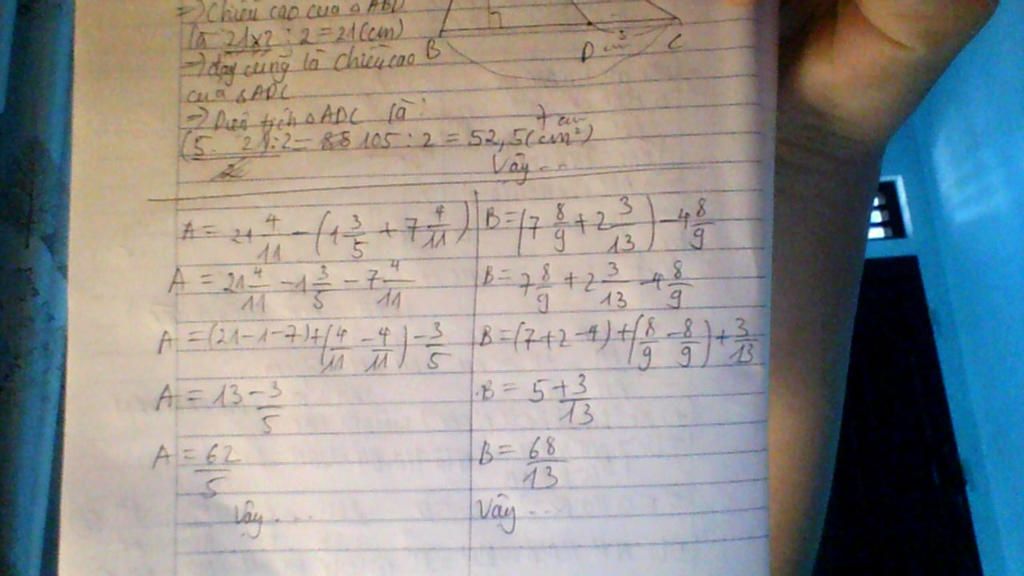 => Chiều cao của △ABD
là 21x2 : 2 = 21 (cm)
→ đây cũng là chiều cao
của △ADC
B D C
→ Diện tích △ADC là :
21 : 2 = 105 : 2 = 52,5 (cm²)
Vậy ...
A = 21 4/11 - (1 3/5 + 7 4/11)
A = 21 4/11 - 1 3/5 - 7 4/11
A = (21-1-7) + (4/11 - 4/11) - 3/5
A = 13 - 3/5
A = 62/5
Vậy ...
B = (7 8/9 + 2 3/13) - 4 8/9
B = 7 8/9 + 2 3/13 - 4 8/9
B = (7+2-4) + (8/9 - 8/9) + 3/13
B = 5 + 3/13
B = 68/13
Vậy ...